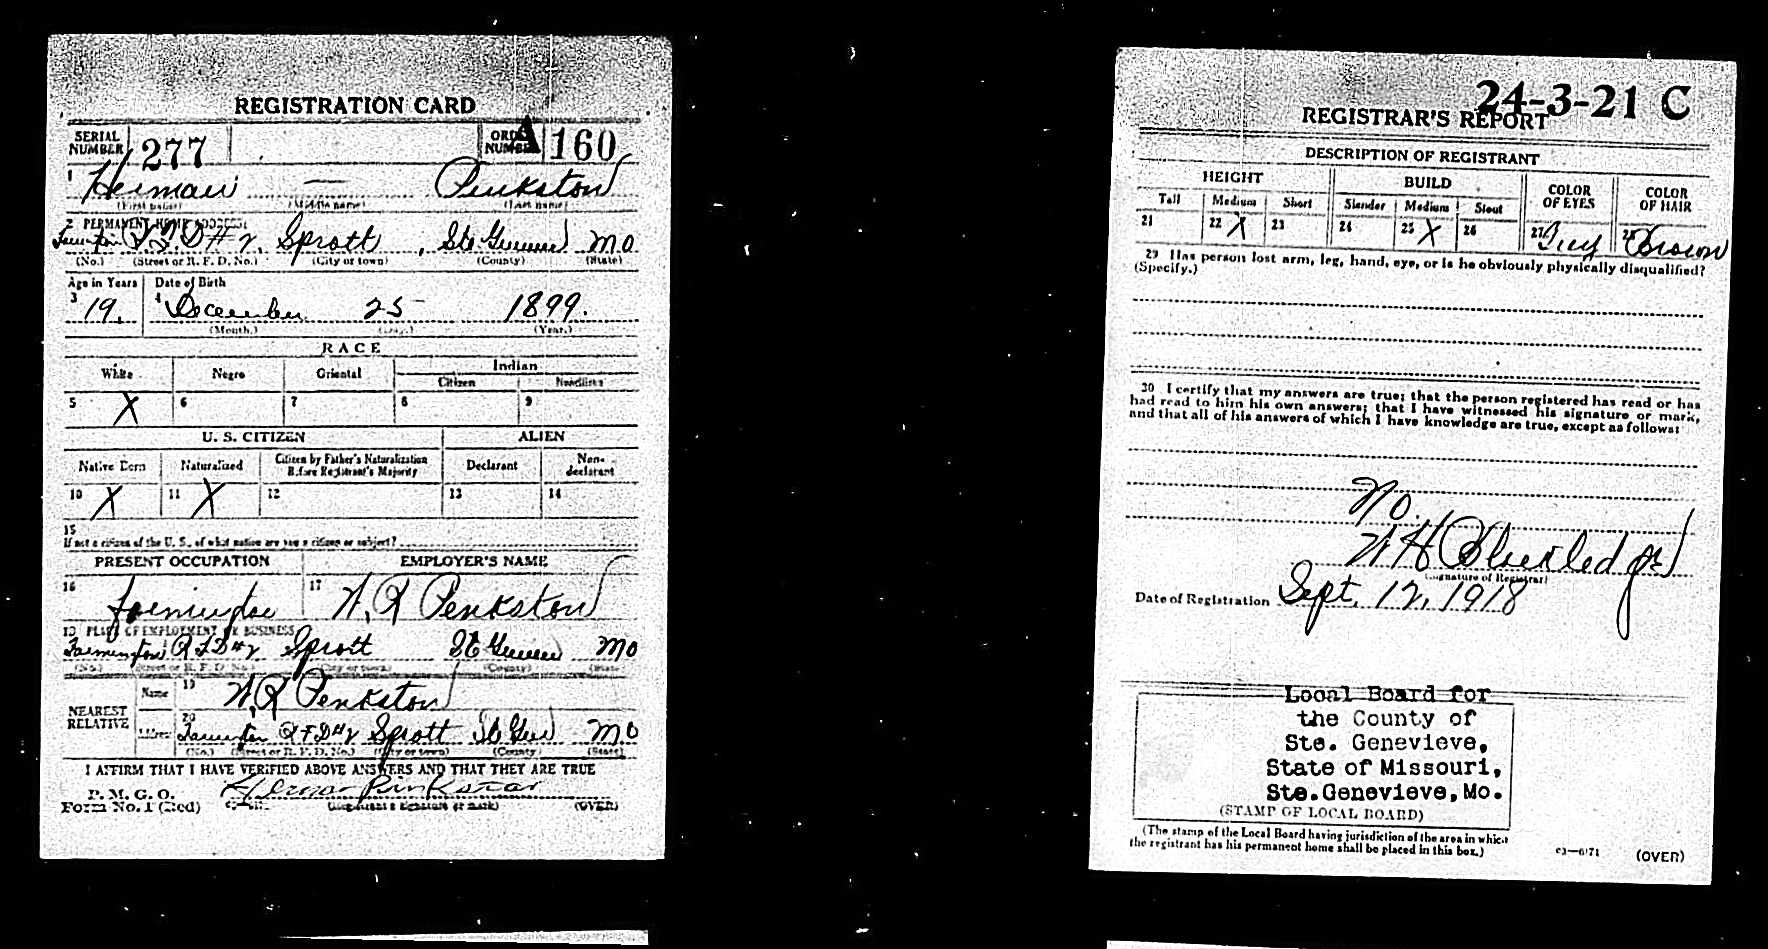 REGISTRATION CARD
SERIAL NUMBER 277 ORDER NUMBER A 160
1 Herman — Penkston
(First name) (Middle name) (Last name)
2 PERMANENT HOME ADDRESS
Farmington R.F.D # 2, Sprott, Ste Genevieve Mo
(No.) (Street or R. F. D. No.) (City or town) (County) (State)
Age in Years Date of Birth
3 19. 4 December 25 1899.
(Month.) (Day.) (Year.)
RACE
White Negro Oriental Indian
Citizen
5 X 6 7 8 9
U. S. CITIZEN ALIEN
Native Born Naturalized Citizen by Father's Naturalization Before Registrant's Majority Declarant Non-declarant
10 X 11 X 12 13 14
15
If not a citizen of the U. S., of what nation are you a citizen or subject?
PRESENT OCCUPATION EMPLOYER'S NAME
16 17 W. R Penkston
18 PLACE OF EMPLOYMENT OR BUSINESS
Farmington R F D # 2 Sprott St Mo
(No.) (Street or R. F. D. No.) (City or town) (County) (State)
NEAREST RELATIVE Name 19 W. R Penkston
Address 20 Farmington R F D # 2 Sprott St Gen Mo
(No.) (Street or R. F. D. No.) (City or town) (County) (State)
I AFFIRM THAT I HAVE VERIFIED ABOVE ANSWERS AND THAT THEY ARE TRUE
P. M. G. O.
Form No. 1 (Red) Herman Pinkston
(Registrant's signature or mark) (OVER)
24-3-21 C
REGISTRAR'S REPORT
DESCRIPTION OF REGISTRANT
HEIGHT BUILD COLOR OF EYES COLOR OF HAIR
Tall Medium Short Slender Medium Stout
21 22 X 23 24 25 X 26 27 28 Brown
29 Has person lost arm, leg, hand, eye, or is he obviously physically disqualified?
(Specify.)
30 I certify that my answers are true; that the person registered has read or has
had read to him his own answers; that I have witnessed his signature or mark,
and that all of his answers of which I have knowledge are true, except as follows:
No.
W H
(Signature of Registrar)
Date of Registration Sept. 12, 1918
Local Board for
the County of
Ste. Genevieve,
State of Missouri,
Ste.Genevieve,Mo.
(STAMP OF LOCAL BOARD)
(The stamp of the Local Board having jurisdiction of the area in which
the registrant has his permanent home shall be placed in this box.)
(OVER)